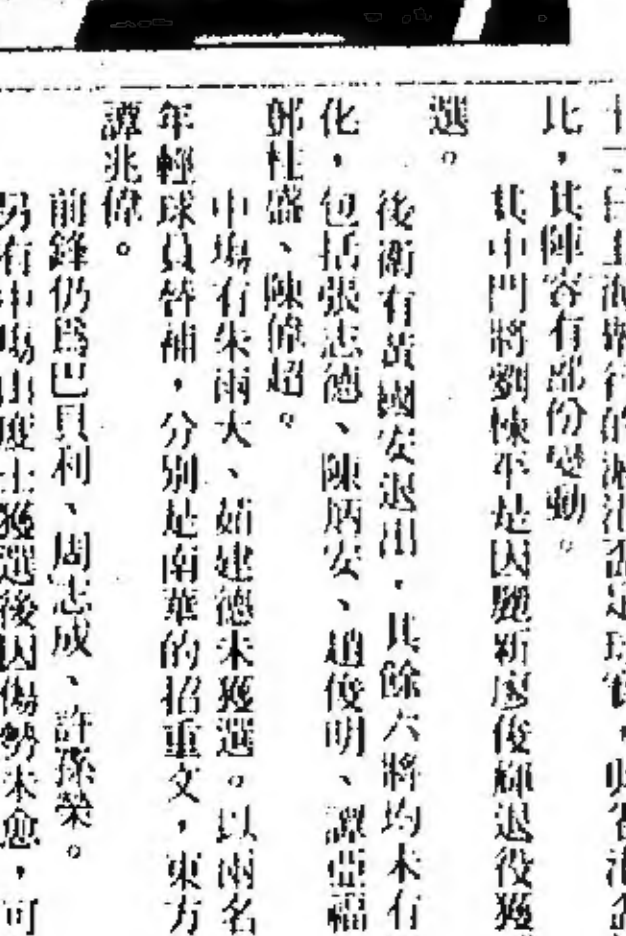 比，其陣容有部份變動。
其中門將劉棟平是因麗新廖俊輝退役獲
選。
後衛有黃國安退出，其餘六將均未有
化，包括張志德、陳炳安、趙俊明、譚亞福
鄧桂盛、陳偉超。
中場有朱雨大、姑建德未獲選。以兩名
年輕球員替補，分別是南華的招重文，東方
譚兆偉。
前鋒仍爲巴貝利、周志成、許孫榮。
另有中場山度士獲選後因傷勢未愈，可